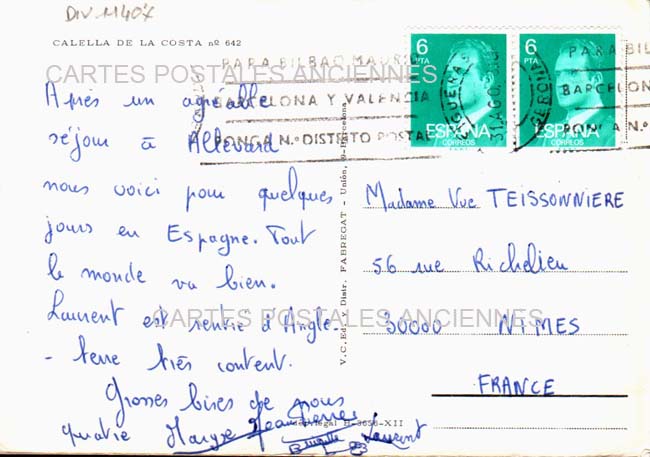 DIV 11407
CALELLA DE LA COSTA nº 642
CARTES POSTALES ANCIENNES
PARA BILBAO, MADRID
BARCELONA Y VALENCIA
PONGA N.º DISTRITO POSTAL
FIGUERAS
31 AGO.
GERONA
6
PTA
ESPAÑA
CORREOS
6
PTA
ESPAÑA
CORREOS
PARA BIL
BARCELON
PONGA N.º
Après un agréable
séjour à Allevard
nous voici pour quelques
jours en Espagne. Tout
le monde va bien.
Laurent est rentré d'Angle-
-terre très content.
Grosses bises de nous
quatre Maryse Jean Pierre
Brigitte Laurent
V. C. Ed. y Distr. FABREGAT - Unión, Barcelona
Madame Vve TEISSONNIERE
56 rue Richelieu
30000 NIMES
FRANCE
CARTES POSTALES ANCIENNES